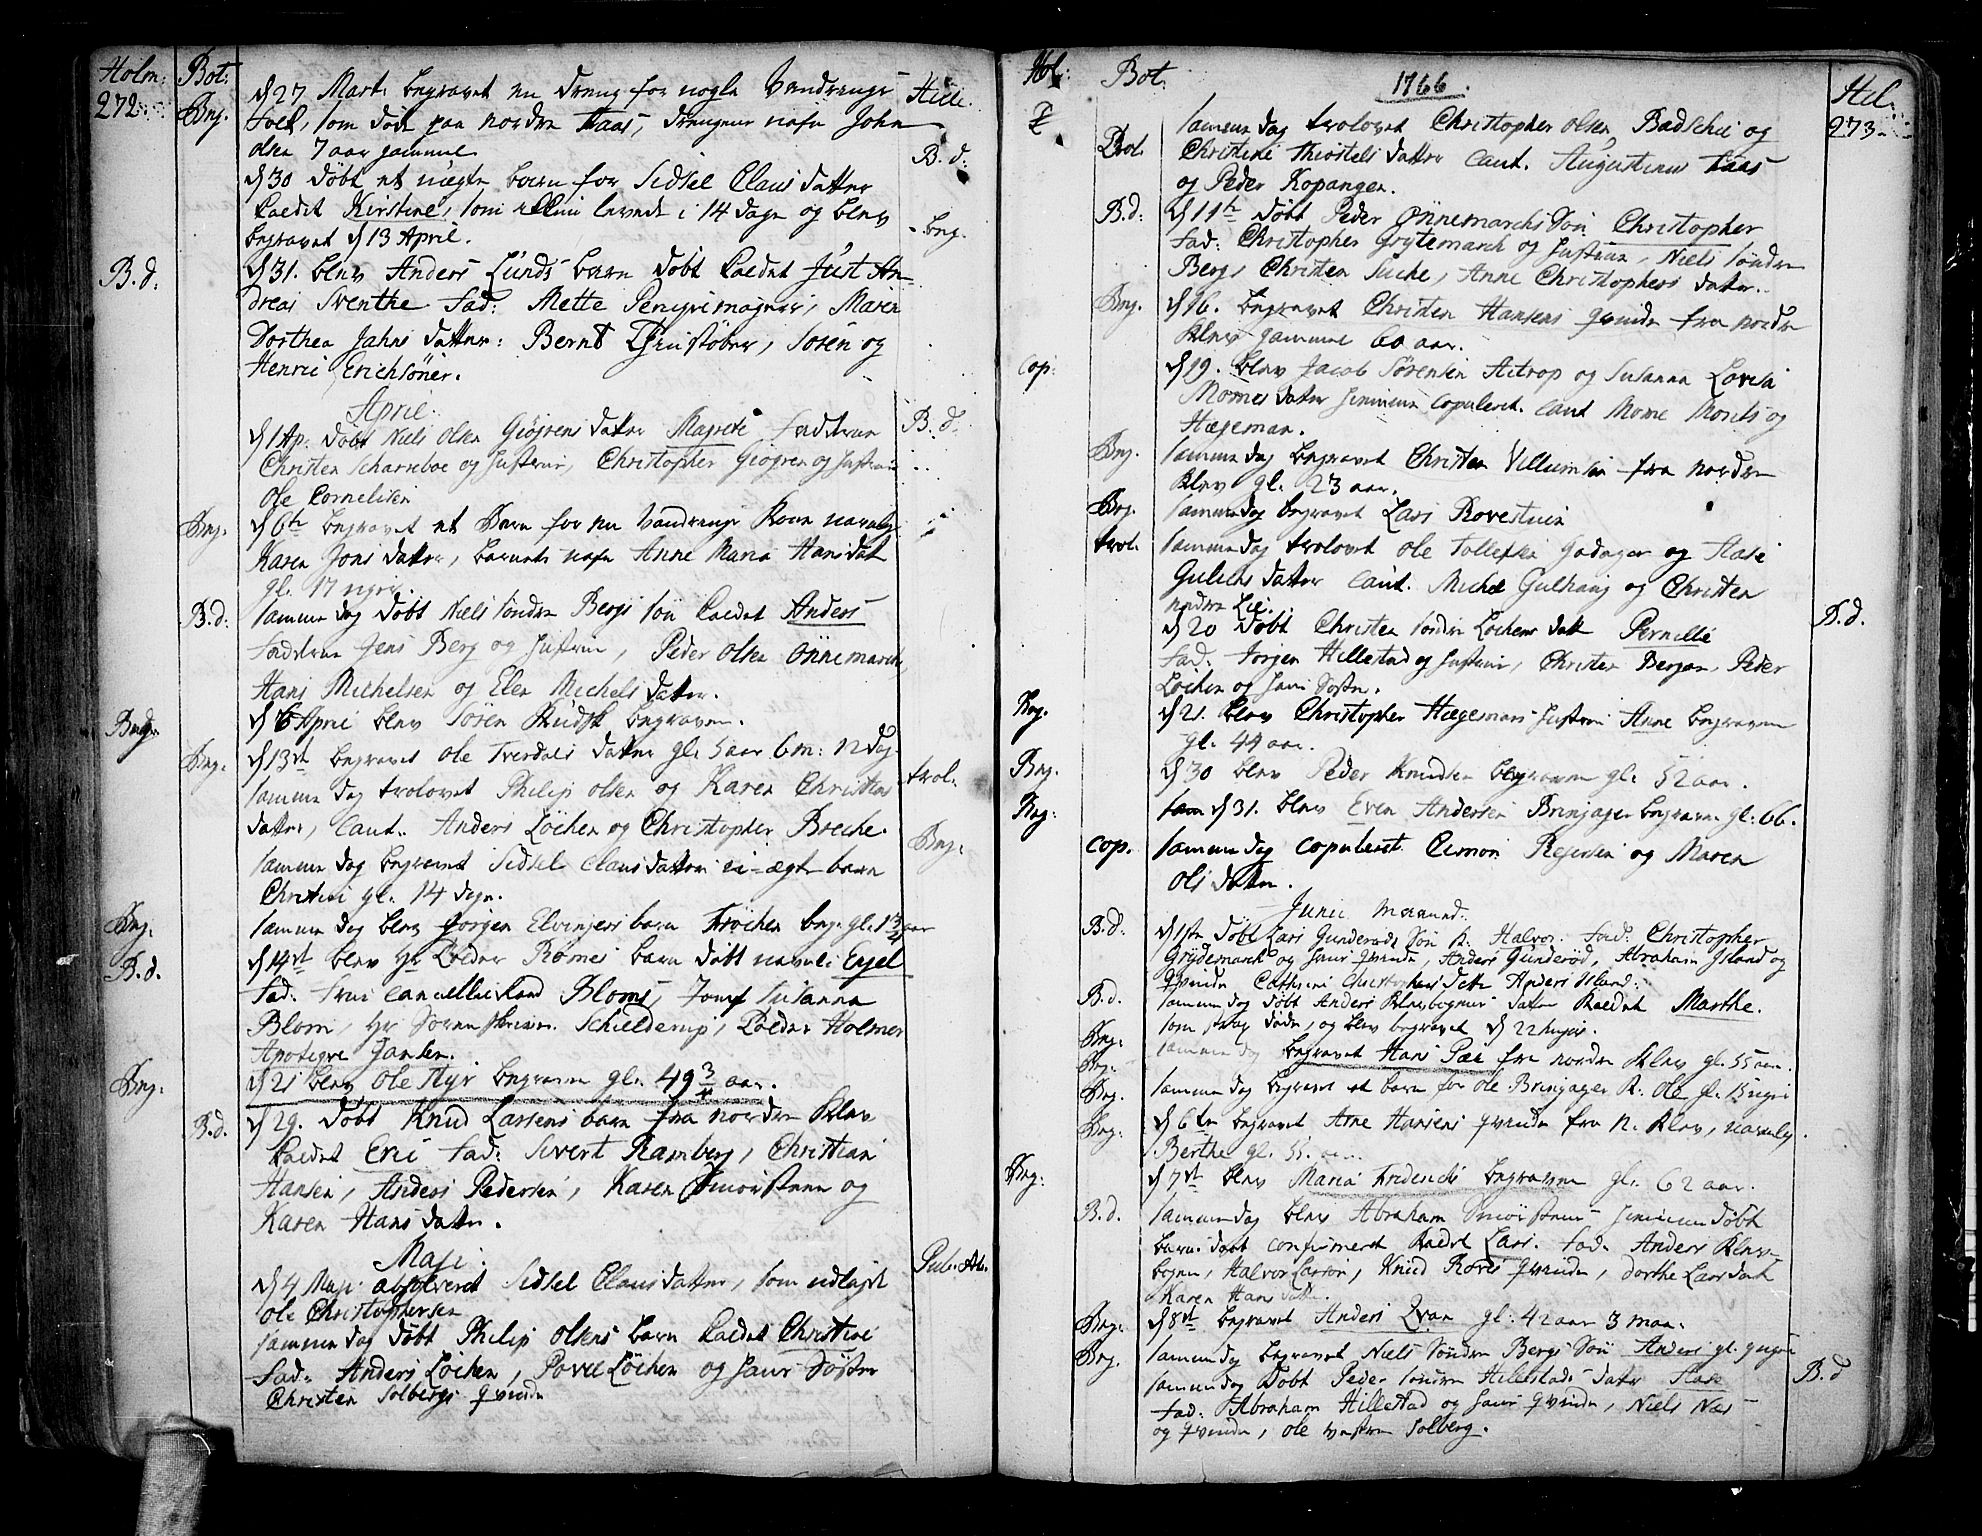 Holm: Bot: Hille.
272.
Beg. d 27 Mart. begravet en dreng for nogle Vandrings
folk, som døde paa Nordre Kaas, drengens nafn John
Olsen 7 aar gammel
B.d: d 30 døbt et uægte barn for Sidsel Claus datter
kaldet Kirstine, som levede i 14 dage og blev
beg. begravet d 13 April.
B.d: d 31. blev Anders Lunds barn døbt kaldet Just An-
dreas Sventhe Fad: Mette Maren
Dorthea Jahns datter: Bernt Søren og
Henric Erichsøner.
April.
B.d. d 1 Ap. døbt Niels Olsen Giøgrens datter Magrete Fadderne
Christen Scharreboe og Hustrue, Christopher Giøgren og Hustrue
Ole Cornelisen
Beg. d 6te begravet et Barn for en Vandrings Kone navnlig
Karen Jons datter, barnets nafn Anne Maria Hans dat
gl. 17 uger.
B.d: samme dag døbt Niels Søndre Bergs Søn kaldet Anders
Fadderne Jens Berg og Hustrue, Peder Olsen Önnemarch,
Hans Michelsen og Elen Michels datter.
Beg. d 6 April blev Søren begraven.
Beg. d 13de begravet Ole Tverdals datter gl. 5 aar 6 m: 12 dag
trol. samme dag trolovet Philip Olsen og Karen Christens
datter, Caut. Anders Löchen og Christopher Breche.
Beg. samme dag begravet Sidsel Claus datters u-ægte barn
Christine gl. 14 dage.
Beg. samme dag blev Jørgen Elvinjers barn beg. gl. 1 3/4 aar
B.d. d 14de blev Hr Peder Römes barn døbt navnl. Engel
Fad. Frue Cancellieraad Bloms, Jomf Susanna
Blom, Hr Sorenskriver Schielderup, Peder Holmer
Apoteqve Jansen.
Beg. d 21 blev Ole Styr begraven gl. 49 3/4 aar.
B.d. d 29. døbt Knud Larsens barn fra Nordre Klev
kaldet Eric Fad: Sivert Ramberg, Christian
Hansen, Anders Pedersen, Karen Smørsteen og
Karen Hans datter.
Maji.
Pub. Abs. d 4 Maji absolveret Sidsel Claus datter, som udlagde
Ole Christophersen
samme dag døbt Philip Olsens barn kaldet Christine
Fad. Anders Löchen, Povel Löchen og hans Søster
Christen Solbergs qvinde
Hol: Bot. 1766. Hil.
273.
Trol. samme dag trolovet Christopher Olsen Badschie og
Christine Thiostels datter Caut. Augustinus Kaas
og Peder Kopangen.
B.d: d 11te døbt Peder Önnemarchs Søn Christopher
Fad: Christopher Grytemarch og Hustrue, Niels Søndre
Berg, Christen Suche, Anne Christophers datter.
Beg. d 16. begravet Christen Hansens qvinde fra Nordre
Klev gammel 60 aar.
cop: d 19. blev Jacob Sørensen Astrop og Susanna Lovisa
Momes datter hiemme copuleret. Caut Mome Monts og
Hægeman.
Beg. samme dag begravet Christen Villumsen fra Nordre
Klev gl. 23 aar.
Beg. samme dag begravet Lars Rovestuen
trol. samme dag trolovet Ole Tollefsen Godager og Aase
Gulichs datter Caut. Michel Gulhaug og Christen
nedre Lie.
B.d. d 20 døbt Christen Søndre Löchens datt Pernille
Fad. Jørgen Hillestad og Hustrue, Christen Bergan, Peder
Löchen og hans Søster.
Beg. d 21. blev Christopher Hægemans Hustrue Anne begraven
gl. 44 aar.
Beg. d 30 blev Peder Knudsen begraven gl. 52 aar.
Beg: sam d 31. blev Even Andersen Bringager begraven gl. 66.
cop. samme dag copuleret Cimon Rejersen og Maren
Ols datter.
Junii Maaned.
B.d. d 1ste døbt Lars Gunderøds Søn k. Halvor. Fad: Christopher
Grydemarch og hans qvinde, Anders Gunderød, Abraham Island og
qvinde Cathrine Christophers dette Anders Island.
B.d. samme dag døbt Anders Klevbegners datter kaldet Marthe.
Beg. som strax døde, og blev begravet d 22 hujus.
Beg. samme dag begravet Hans Pæe fra Nordre Klev gl. 55 aar.
Beg. samme dag begravet et barn for Ole Bringager k. Ole gl. 15 uger
Beg: d 6te begravet Arne Hansens qvinde fra N. Klev, navnlig
Berthe gl. 55. aar.
Beg: d 7de blev Maria Friderichs begraven gl. 62 aar.
B.d. samme dag blev Abraham Smörsteens hiemmedøbt
barn døbt confirmeret kaldet Lars. Fad. Anders Klev-
begne, Halvor Larsön, Knud Roves qvinde, Dorthe Lars datt
Karen Hans datter.
Beg: d 8de begravet Anders Qvan gl. 42 aar 3 maa.
Beg. samme dag begravet Niels Søndre Bergs Søn Anders gl. 9 uger
B.d samme dag døbt Peder Søndre Hillestads datter Aase
Fad: Abraham Hillestad og hans qvinde, Niels Næs
og qvinde, Ole Vestre Solberg.